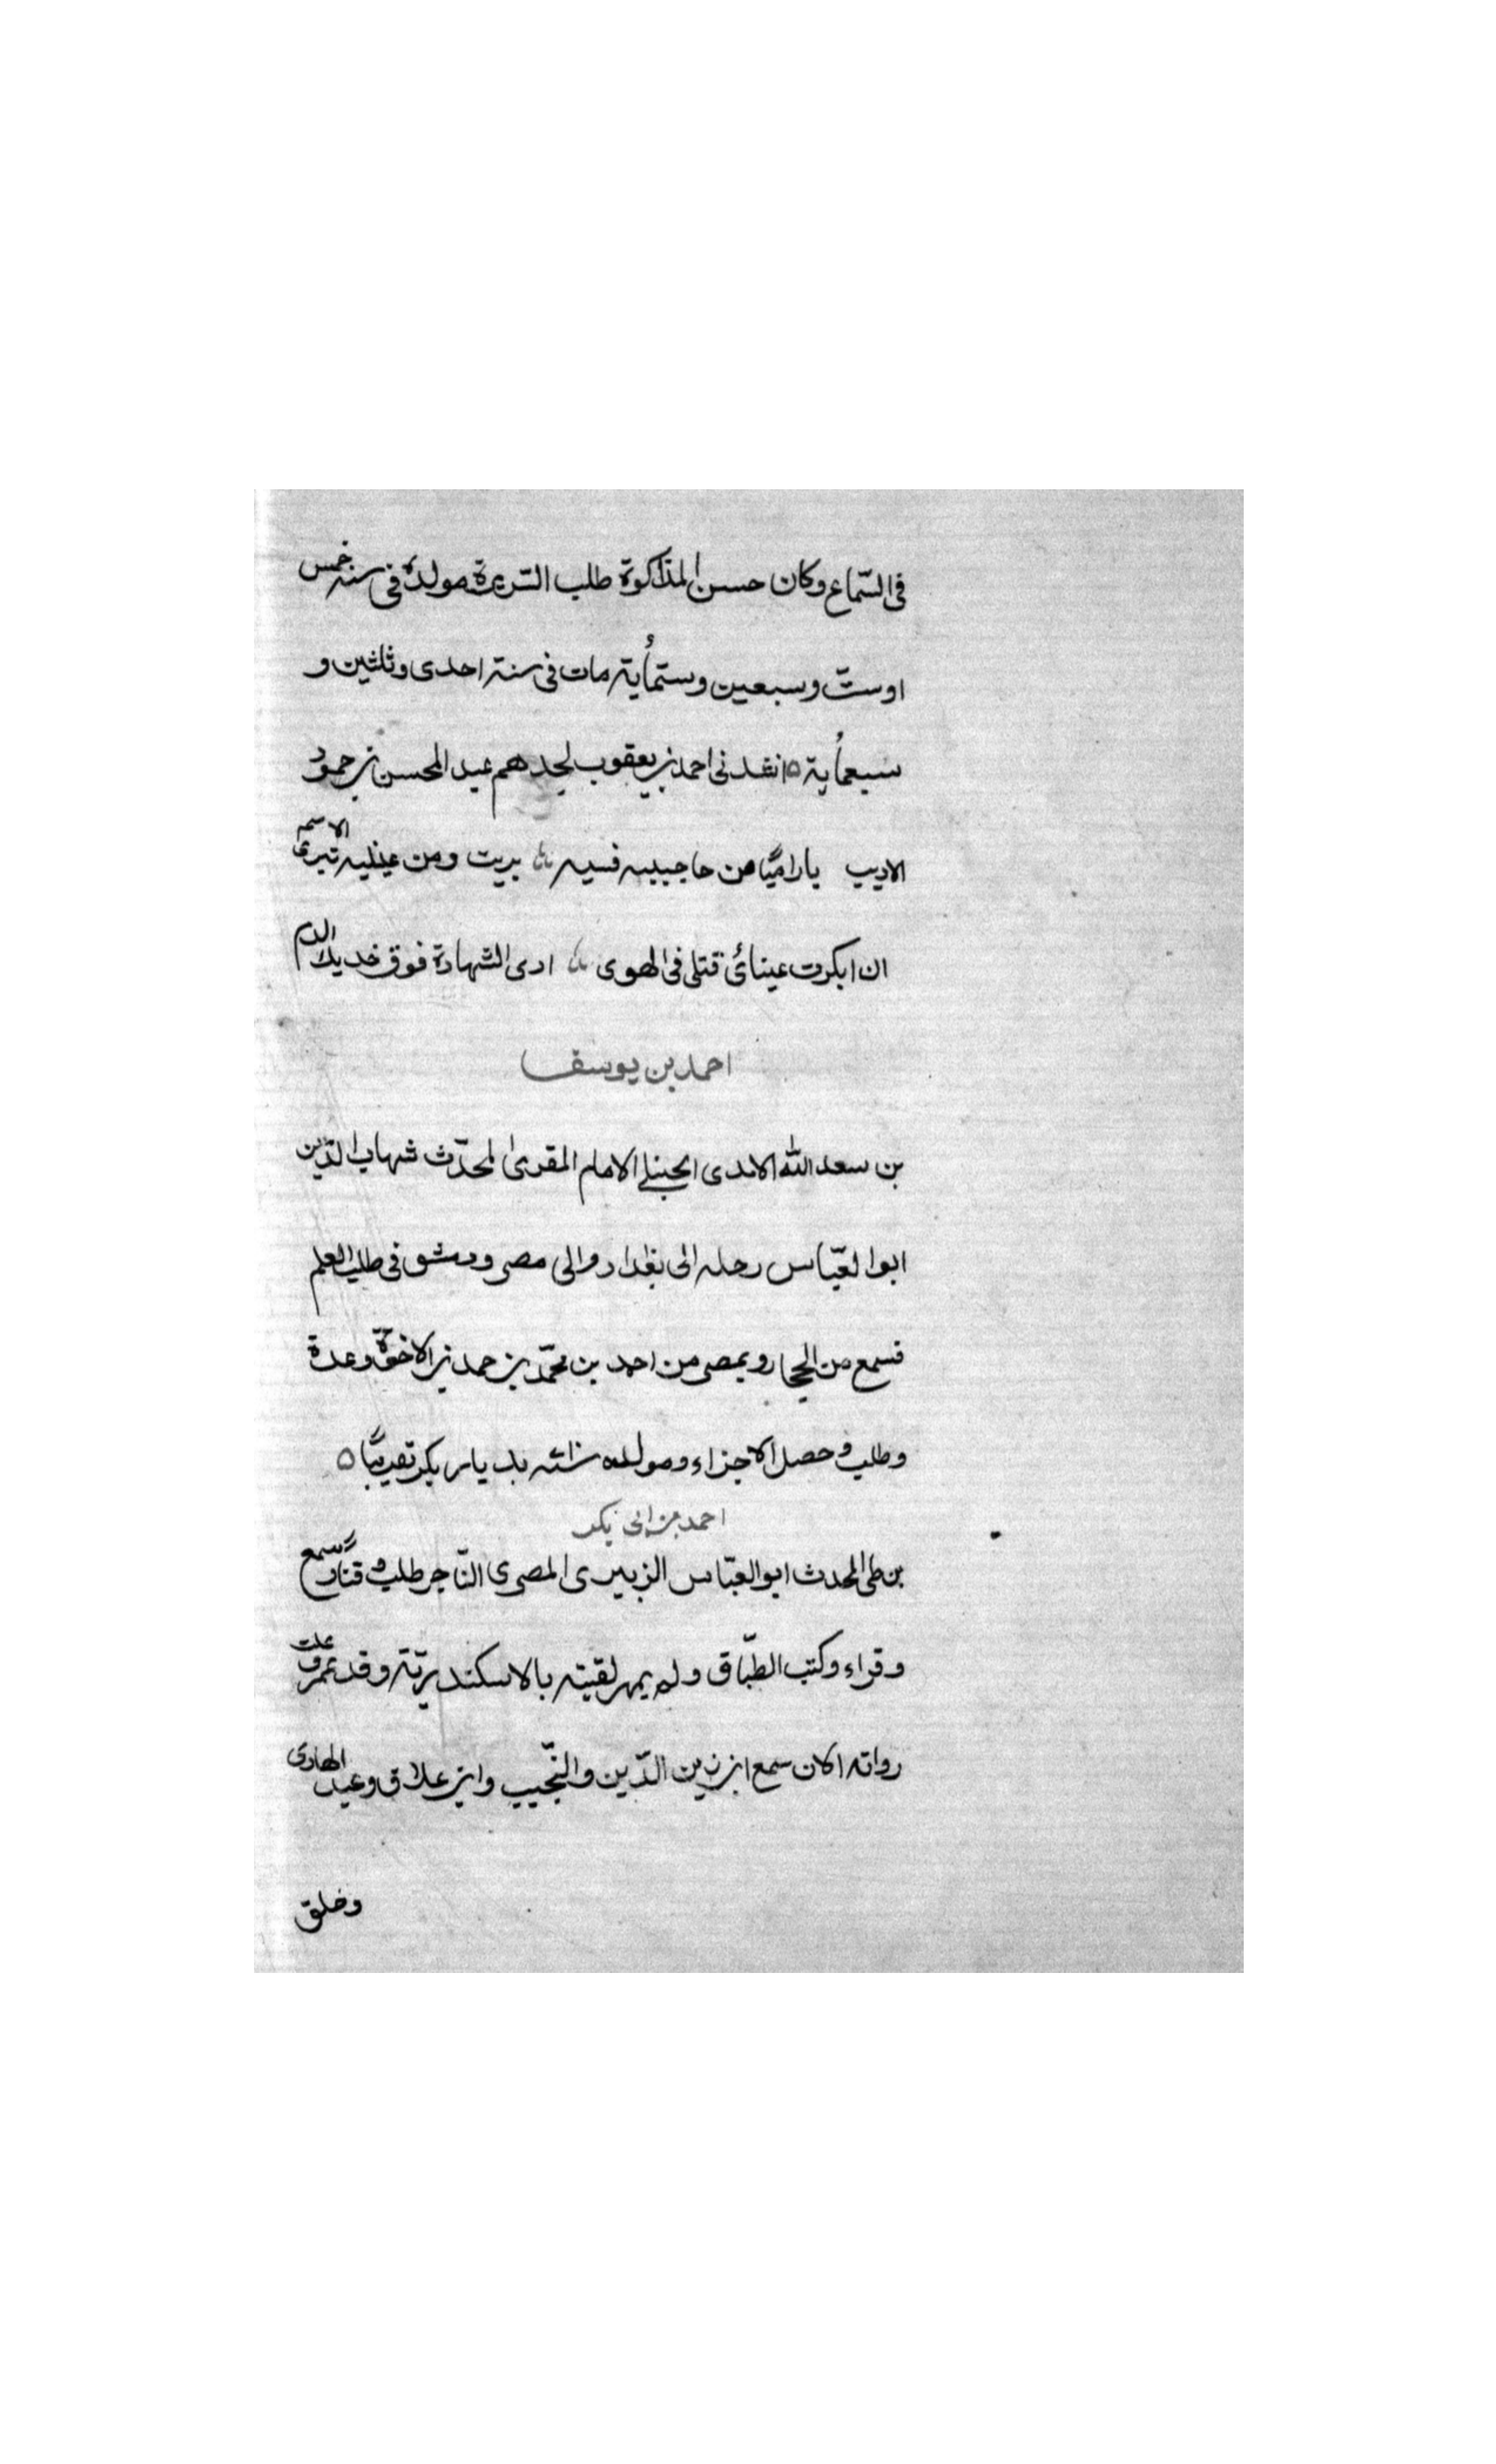 فى السّماع وكان حسن المذاكرة طلب السريرة مولده فى سنة خمس
اوستّ وسبعين وستمأية مات فى سنة احدى وثلثين و
سبعمأية ٥ انشدنى احمد بن يعقوب لجدهم عبد المحسن بن حمود
الاديب يا راميًا من حاجبيه قسيه بريت ومن عينيه تبرى الاسهم
ان انكرت عيناك قتلى فى الهوى ادى الشهادة فوق خديك الدم
احمد بن يوسف
بن سعد الله الامدى الحنبلى الامام المقرى المحدّث شهاب الدّين
ابوا لعبّاس رحله الى بغداد والى مصر ودمشق فى طلب العلم
فسمع من الحجار وبمصر من احمد بن محمّد بن حمد بن الاخوّة وعدة
وطلب وحصل الاجزاء ومولده بديار بكر تقريبًا ٥
احمد بن ابى بكر
بن طى المحدث ابو العبّاس الزبيرى المصرى التّاجر طلب وسمع
وقراء وكتب الطّباق ولم يمهر لقيته بالاسكندريّة وقد علت
رواته الان سمع ابن زين الدّين والنّجيب وابن علاق وعبد الهادى
وخلق